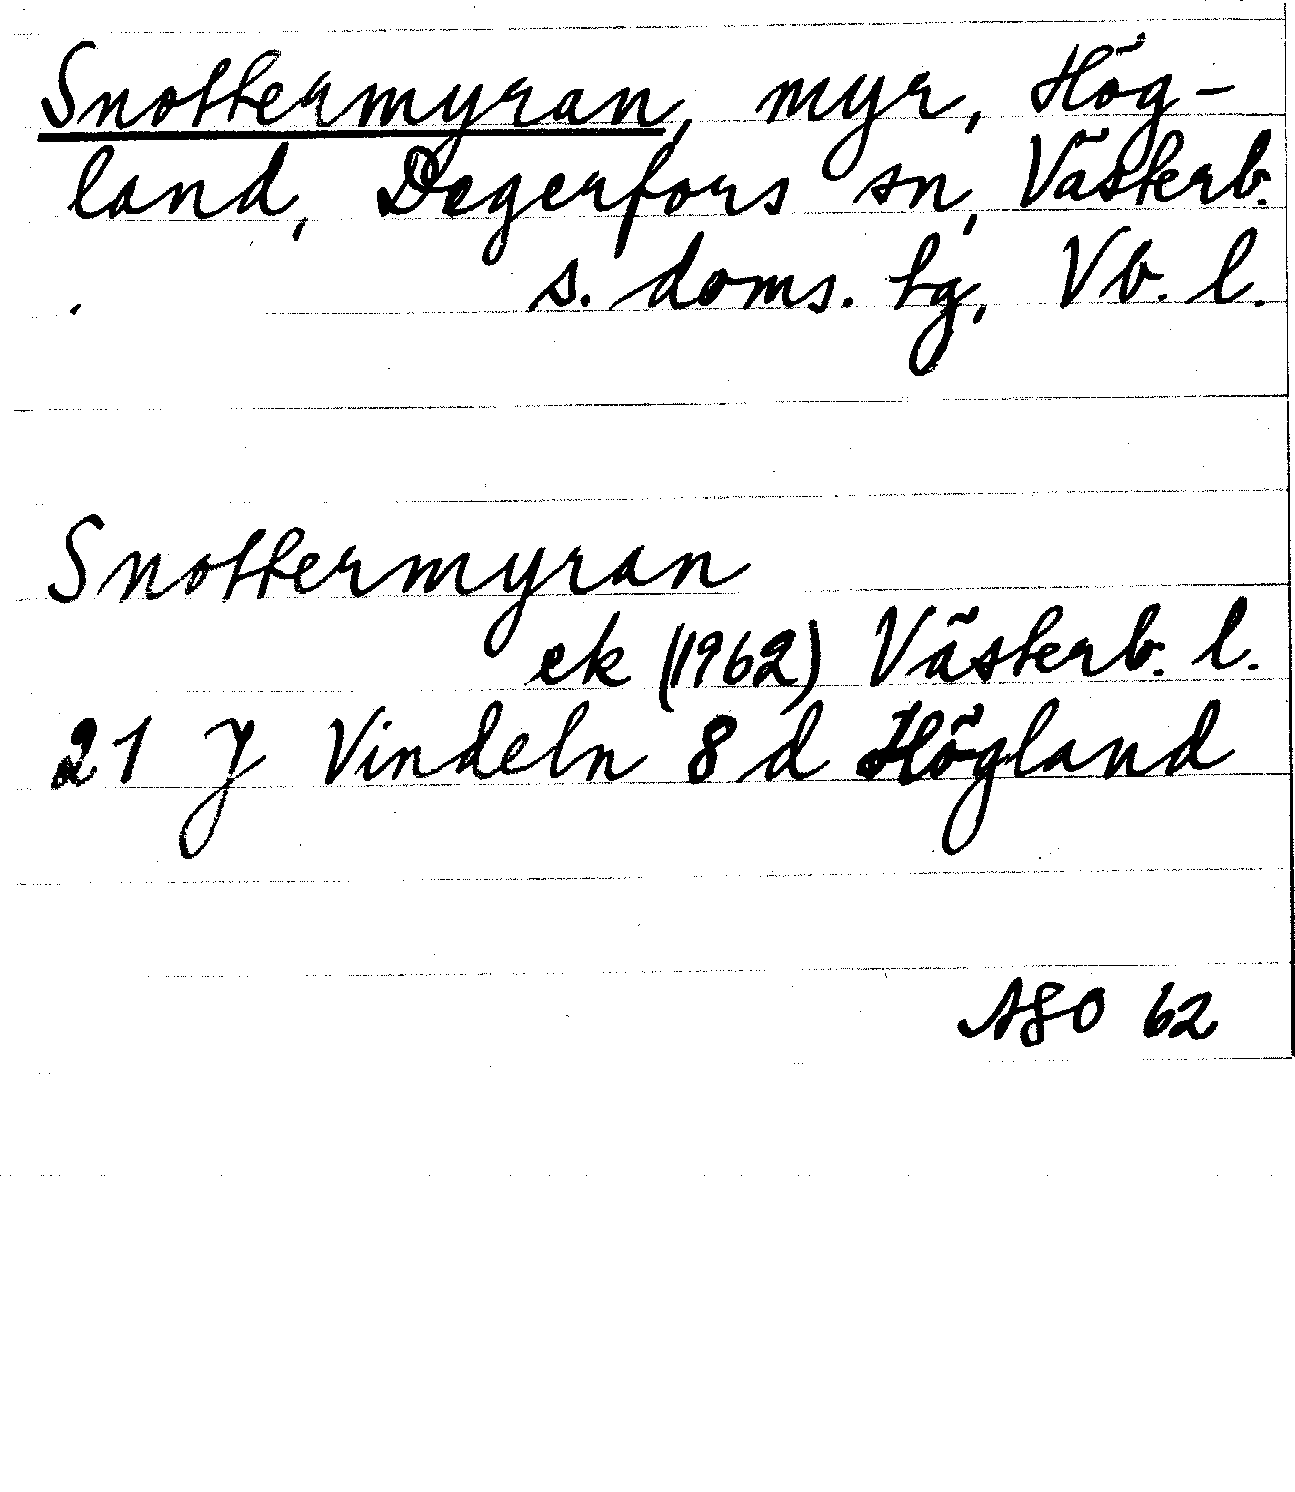 Snottermyran, myr, Hög-
land, Degerfors sn, Västerb.
s. doms. hg, Vb. l.
Snottermyran
ek (1962) Västerb. l.
21 J Vindeln 8 d Högland
ASO 62